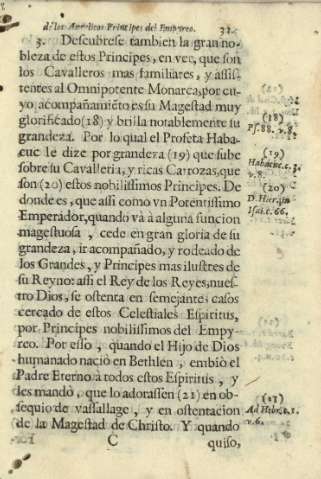 de los Angelicos Principes del Empyreo. 31.
3. Descubrese tambien la gran no-
bleza de estos Principes, en ver, que son
los Cavalleros mas familiares, y assis-
tentes al Omnipotente Monarca, por cu-
yo acompañamiẽto es su Magestad muy
glorificado (18) y brilla notablemente su
grandeza. Por lo qual el Profeta Haba-
cuc le dize por grandeza (19) que sube
sobre su Cavalleria, y ricas Carrozas, que
son (20) estos nobilissimos Principes. De
donde es, que assi como vn Potentissimo
Emperador, quando và à alguna funcion
magestuosa, cede en gran gloria de su
grandeza, ir acompañado, y rodeado de
los Grandes, y Principes mas ilustres de
su Reyno: assi el Rey de los Reyes, nues-
tro Dios, se ostenta en semejantes casos
cercado de estos Celestiales Espiritus,
por Principes nobilissimos del Empy-
reo. Por esso, quando el Hijo de Dios
humanado naciò en Bethlen, embiò el
Padre Eterno à todos estos Espiritus, y
les mandò, que lo adorassen (21) en ob-
sequio de vassallage, y en ostentacion
de la Magestad de Christo. Y quando
C quiso,
(18)
Ps. 88. v. 8.
(19)
Habacuc. c. 3.
v. 8.
(20)
D. Hier. in
Isai. c. 66.
(21)
Ad Hebr. c. 1.
v. 6.